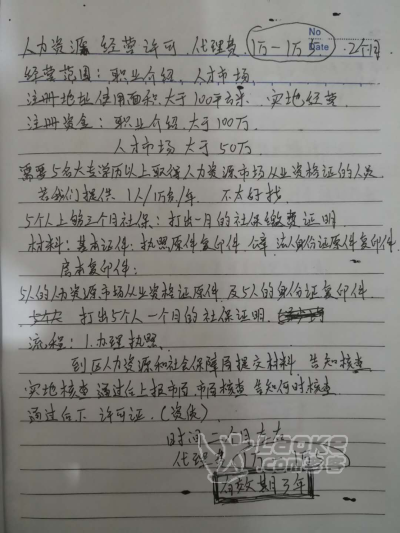 No
Date
人力资源 经营许可 代理费 1万-1万5 2个月
经营范围：职业介绍、人才市场
注册地址使用面积大于100平方米 实地经营
注册资金：职业介绍大于100万
人才市场 大于50万
需要5名大专学历以上取得人力资源市场从业资格证的人员
若我们提供 1人/1万多/年 不太好找
5个人上够三个月社保：打出一月的社保缴费证明
材料：基本证件：执照原件复印件 公章 法人身份证原件复印件
房本复印件：
5人的人力资源市场从业资格证原件 及5人的身份证复印件
打出5个人一个月的社保证明
流程：1.办理执照
到区人力资源和社会保障局提交材料 告知核查
实地核查 通过后上报市局 市局核查 告知何时核查
通过后下 许可证。
时间一个月左右
代理费
有效期3年